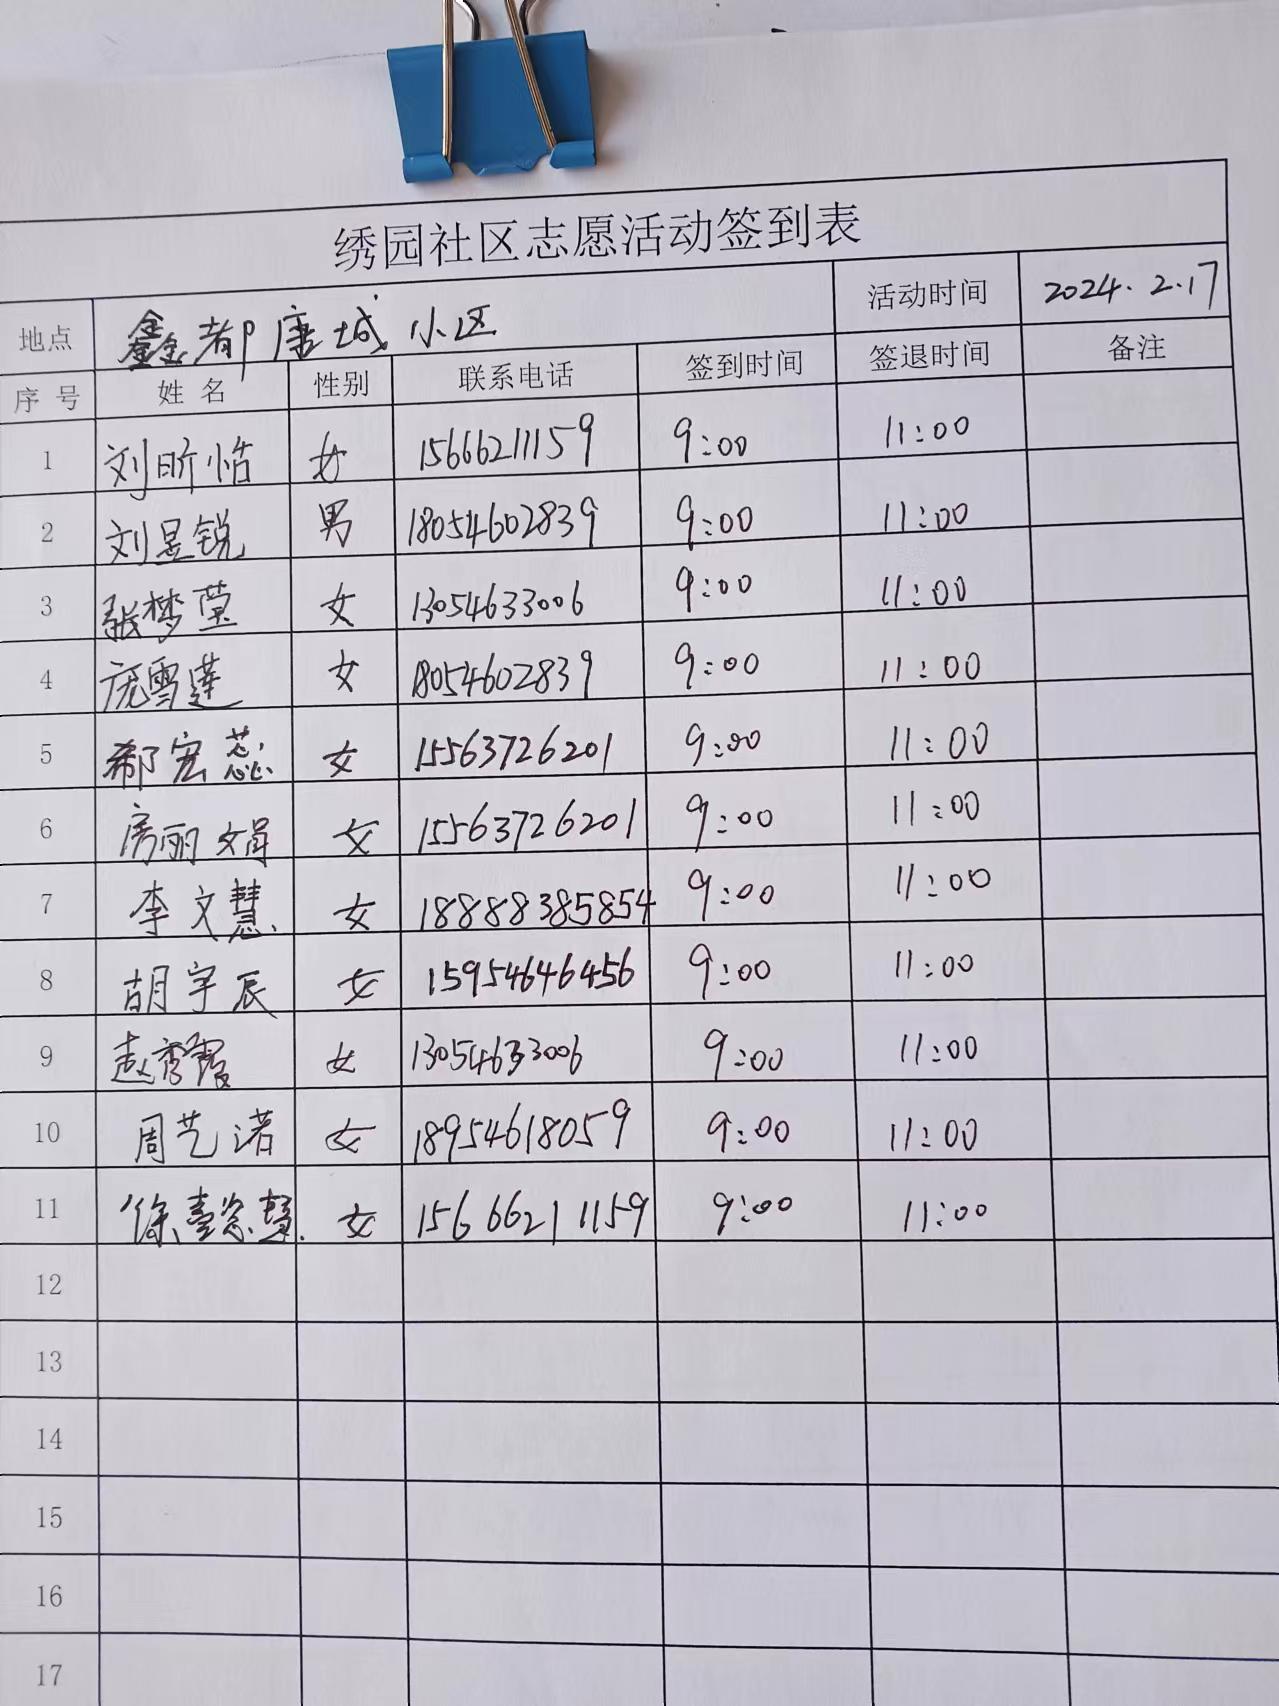 绣园社区志愿活动签到表
地点 鑫都唐城小区 活动时间 2024.2.17
序号 姓名 性别 联系电话 签到时间 签退时间 备注
1 刘昕恬 女 15666211159 9:00 11:00
2 刘昱锐 男 18054602839 9:00 11:00
3 张梦莹 女 13054633006 9:00 11:00
4 庞雪莲 女 18054602839 9:00 11:00
5 郗宏蕊 女 15563726201 9:00 11:00
6 房丽娟 女 15563726201 9:00 11:00
7 李文慧 女 18888385854 9:00 11:00
8 胡宇辰 女 15954646456 9:00 11:00
9 赵秀霞 女 13054633006 9:00 11:00
10 周艺诺 女 18954618059 9:00 11:00
11 徐 女 15666211159 9:00 11:00
12
13
14
15
16
17